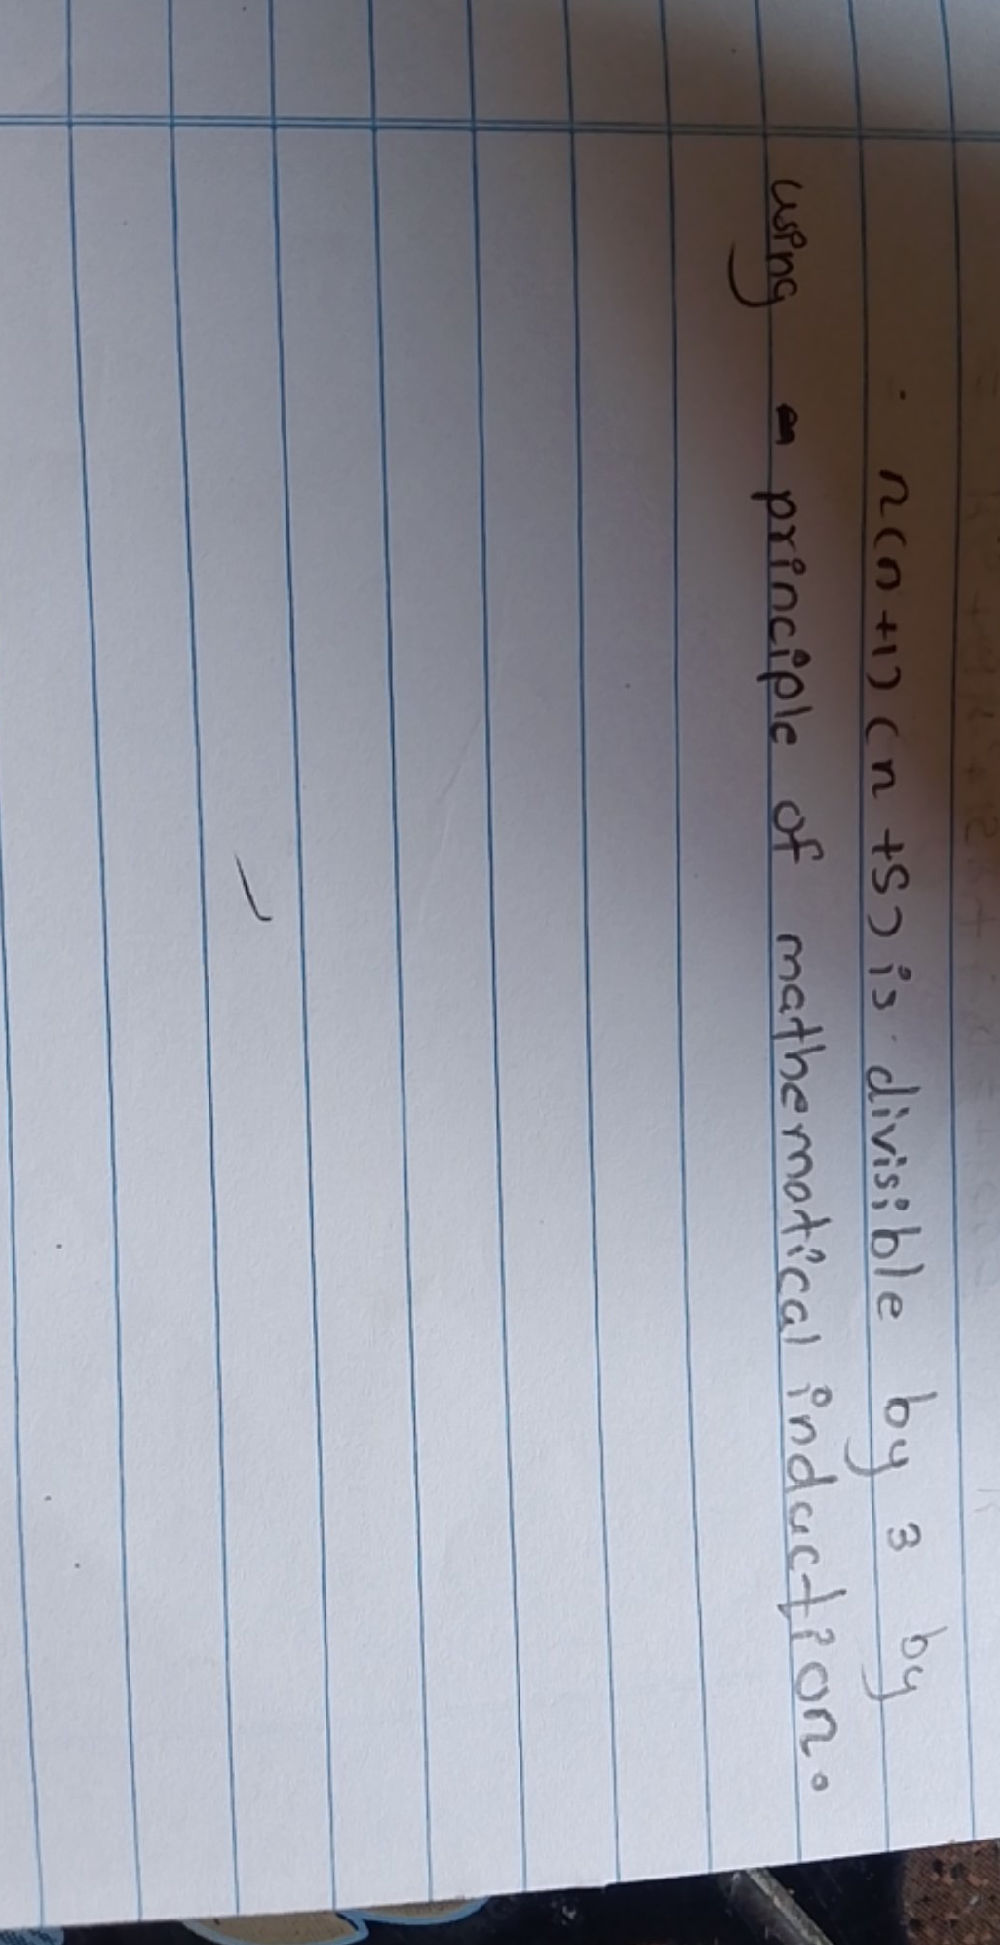 n(n+1)(n+5) is divisible by 3 by
using principle of mathematical induction.